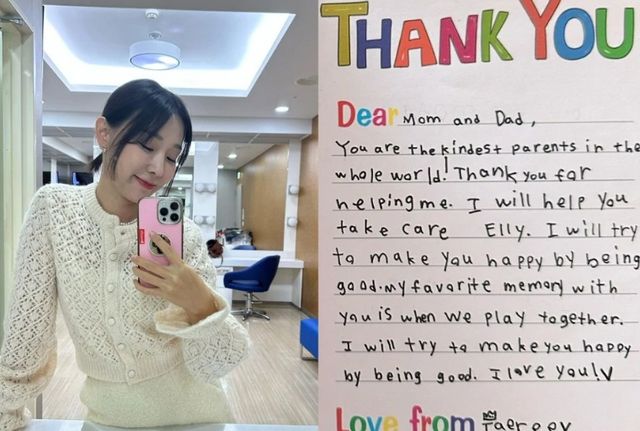 THANK YOU
Dear Mom and Dad,
You are the kindest parents in the
whole world! Thank you for
helping me. I will help you
take care Elly. I will try
to make you happy by being
good. my favorite memory with
you is when we play together.
I will try to make you happy
by being good. I love you!
Love from